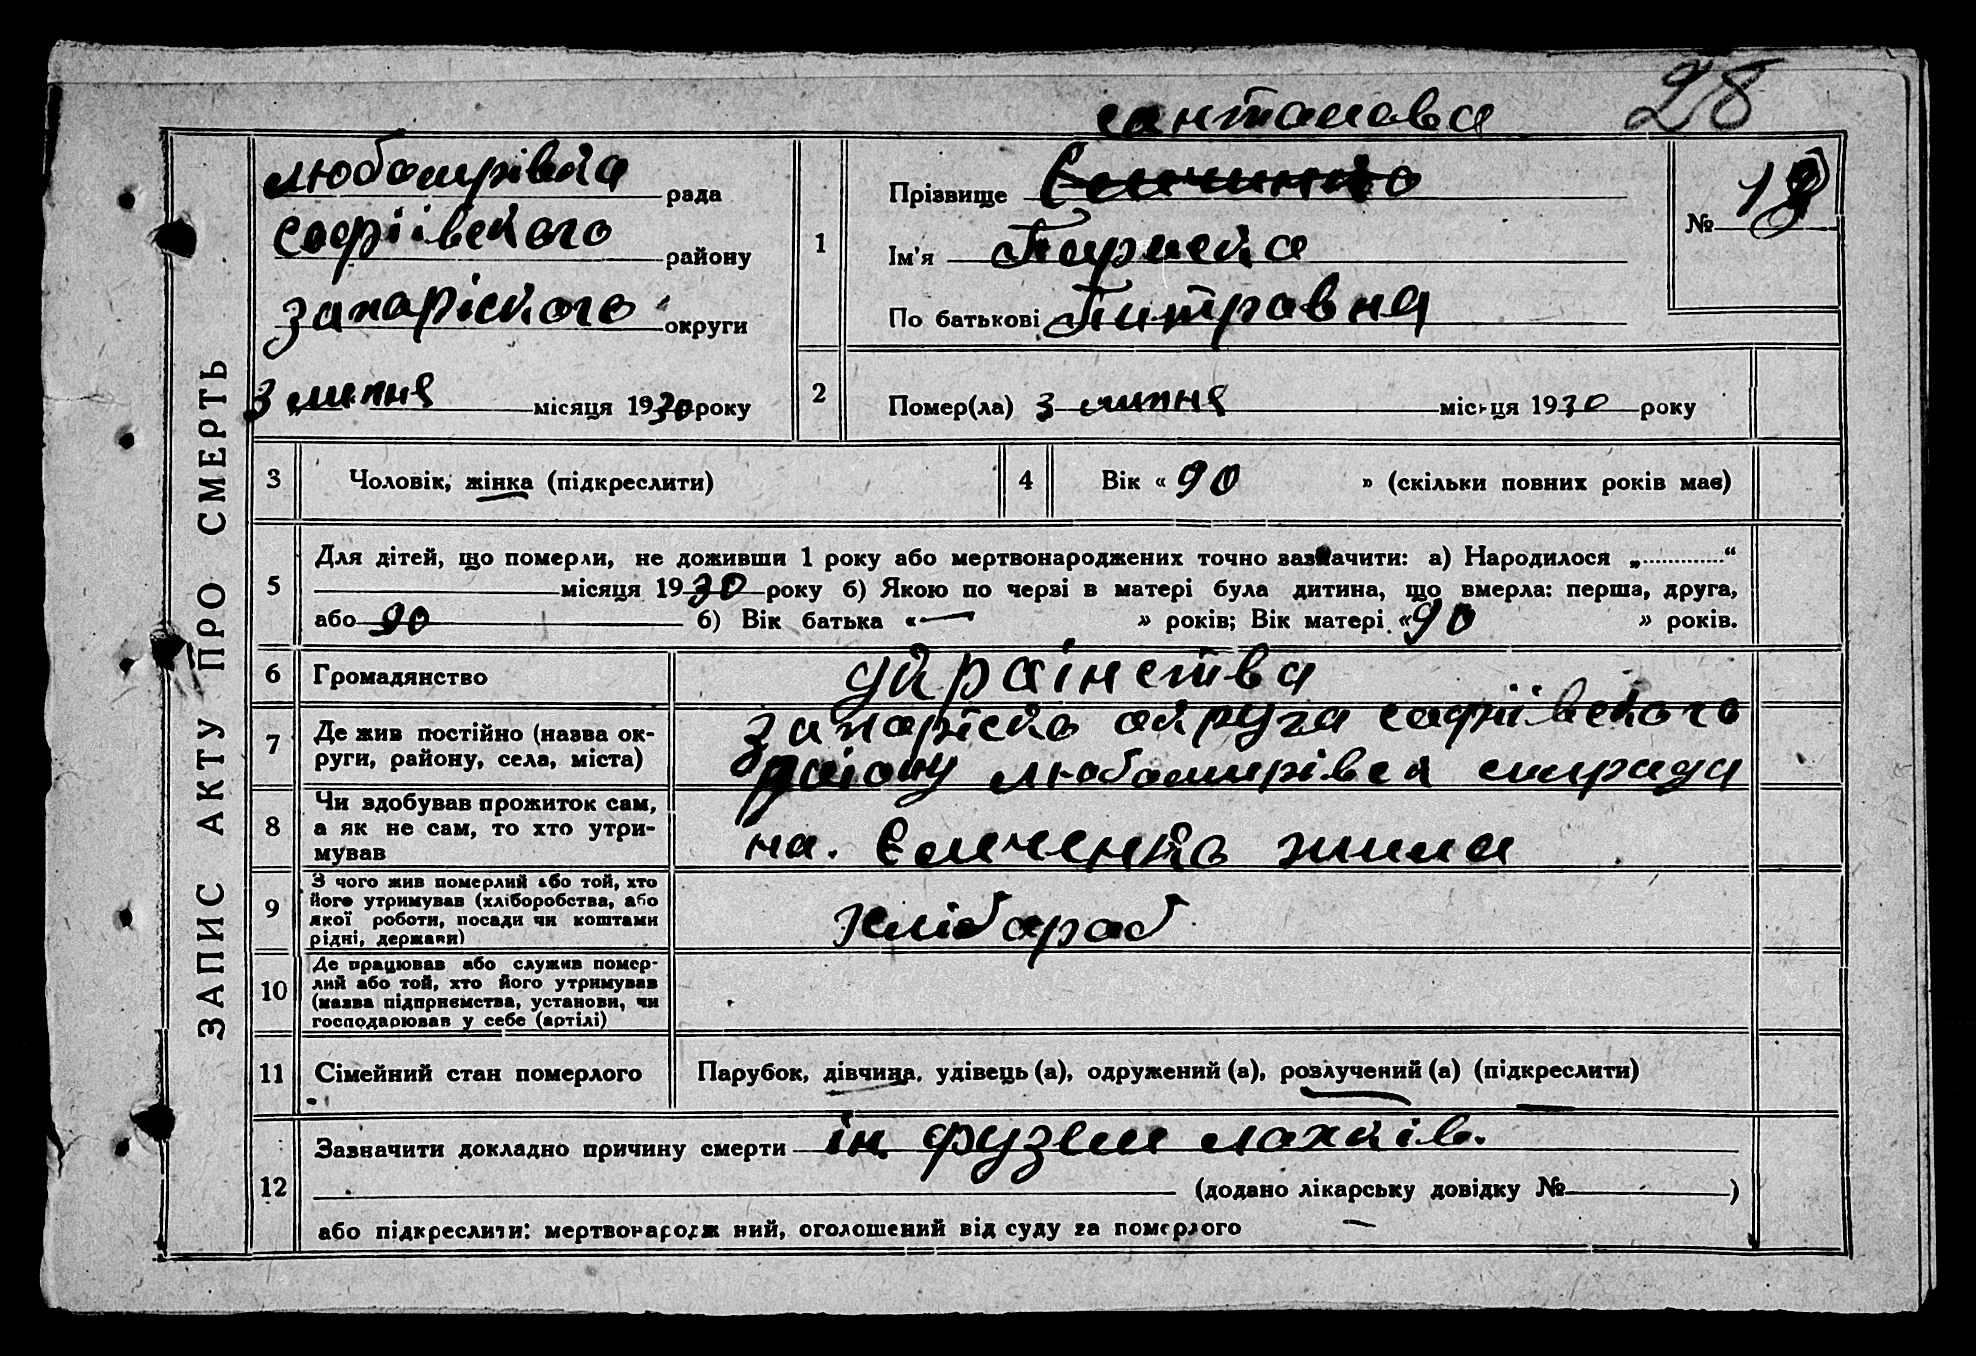 28
санталова
ЗАПИС АКТУ ПРО СМЕРТЬ
любомирівка рада
софіівского району
запаріского округи
3 липня місяця 1930 року
1
Прізвище Емчинко
Ім'я
По батькові Питровна
№ 18
2
Помер(ла) 3 липня місяця 1930 року
3
Чоловік, жінка (підкреслити)
4
Вік « 90 » (скільки повних років має)
5
Для дітей, що померли, не доживши 1 року або мертвонароджених точно зазначити: а) Народилося „............“
місяця 1930 року б) Якою по черві в матері була дитина, що вмерла: перша, друга,
або 90 б) Вік батька «—» років; Вік матері «90» років.
6
Громадянство
украінства
7
Де жив постійно (назва ок-
руги, району, села, міста)
запаріска округа софіівского
раіону любомирівск
8
Чи здобував прожиток сам,
а як не сам, то хто утри-
мував
на. Емченко жила
9
З чого жив померлий або той, хто
його утримував (хліборобства, або
якої роботи, посади чи коштами
рідні, держави)
хлібороб
10
Де працював або служив помер-
лий або той, хто його утримував
(назва підприємства, установи, чи
господарював у себе (артілі)
11
Сімейний стан померлого
Парубок, дівчина, удівець (а), одружений (а), розлучений (а) (підкреслити)
12
Зазначити докладно причину смерти ін фузем
(додано лікарську довідку № )
або підкреслити: мертвонародж ний, оголошений від суду за померлого